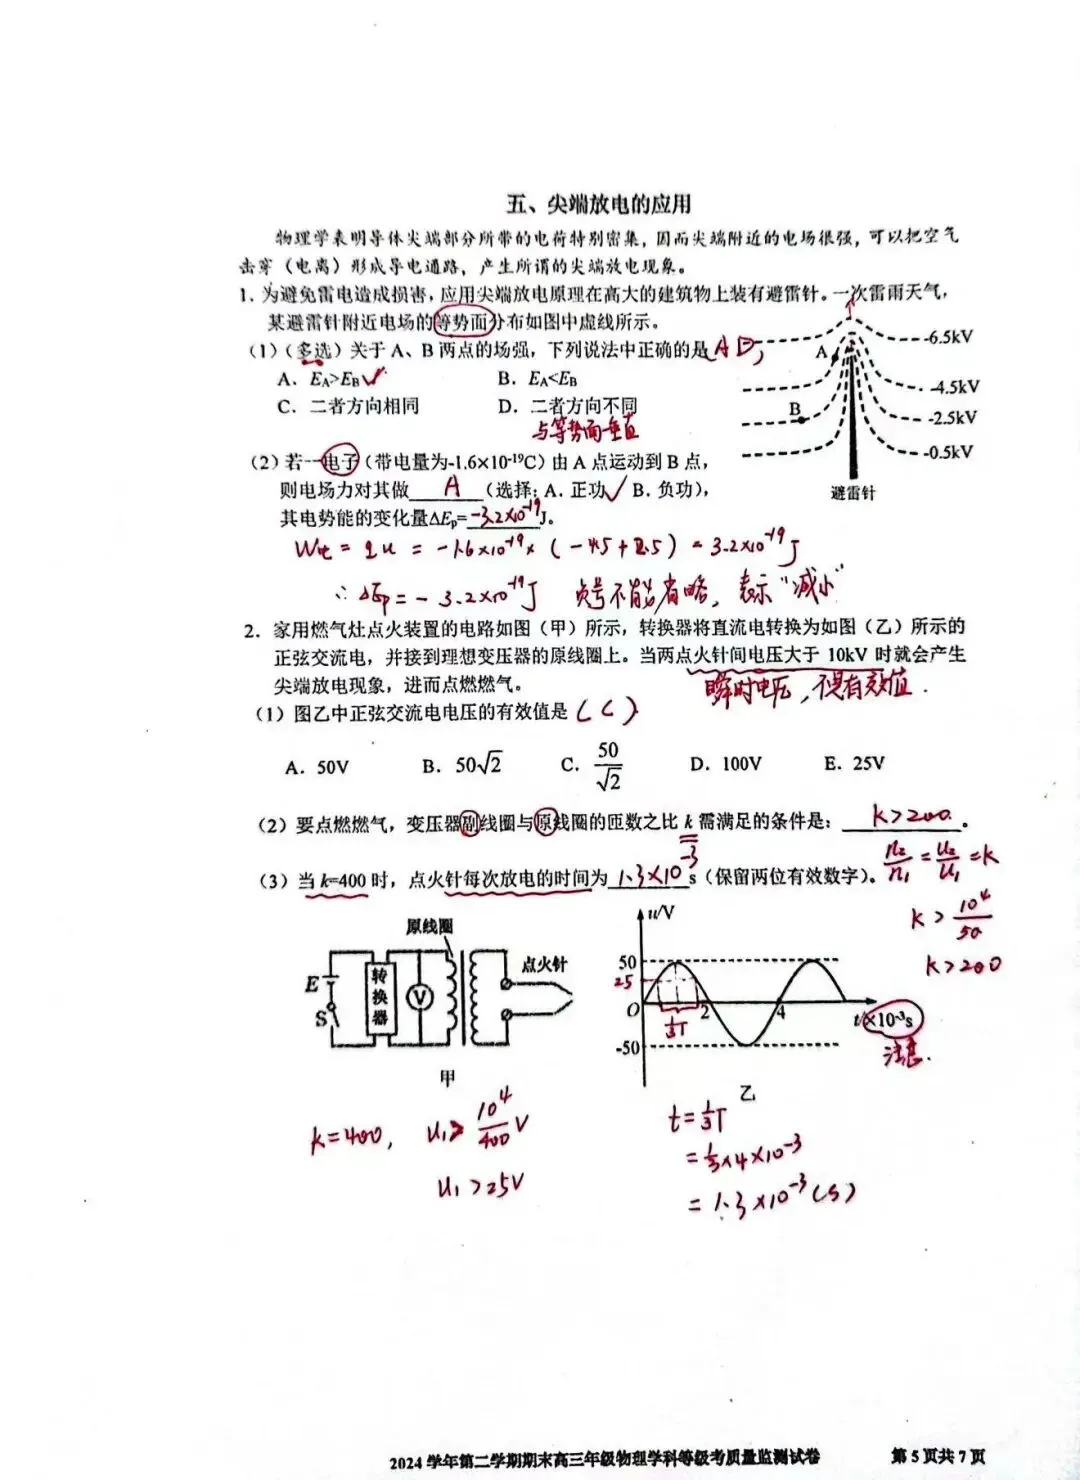 五、尖端放电的应用
物理学表明导体尖端部分所带的电荷特别密集，因而尖端附近的电场很强，可以把空气
击穿（电离）形成导电通路，产生所谓的尖端放电现象。
1．为避免雷电造成损害，应用尖端放电原理在高大的建筑物上装有避雷针。一次雷雨天气，
某避雷针附近电场的等势面分布如图中虚线所示。
（1）（多选）关于 A、B 两点的场强，下列说法中正确的是（A D）
A．EA>EB✓ B．EA<EB
C．二者方向相同 D．二者方向不同
与等势面垂直
-6.5kV
A
-4.5kV
B
-2.5kV
-0.5kV
避雷针
（2）若一电子（带电量为-1.6×10⁻¹⁹C）由 A 点运动到 B 点，
则电场力对其做 A （选择：A. 正功✓ B. 负功），
其电势能的变化量ΔEp=-3.2×10⁻¹⁹J。
W电 = qU = -1.6×10⁻¹⁹×(-4.5+2.5) = 3.2×10⁻¹⁹J
∴ ΔEp = -3.2×10⁻¹⁹J 负号不能省略，表示“减小”
2．家用燃气灶点火装置的电路如图（甲）所示，转换器将直流电转换为如图（乙）所示的
正弦交流电，并接到理想变压器的原线圈上。当两点火针间电压大于 10kV 时就会产生
尖端放电现象，进而点燃燃气。
瞬时电压，不是有效值.
（1）图乙中正弦交流电电压的有效值是（C）
A．50V B．50√2 C．50/√2 D．100V E．25V
（2）要点燃燃气，变压器副线圈与原线圈的匝数之比 k 需满足的条件是： k>200 。
n₂/n₁ = U₂/U₁ = k
（3）当 k=400 时，点火针每次放电的时间为 1.3×10⁻³ s（保留两位有效数字）。
k > 10⁴/50
k>200
原线圈
点火针
E
S
转换器
V
甲
u/V
50
25
O
2
4
-50
t/×10⁻³s
⅓T
注意.
乙
k=400, u₁> 10⁴/400 V
u₁>25V
t=⅓T
=⅓×4×10⁻³
=1.3×10⁻³(s)
2024 学年第二学期期末高三年级物理学科等级考质量监测试卷 第 5 页共 7 页